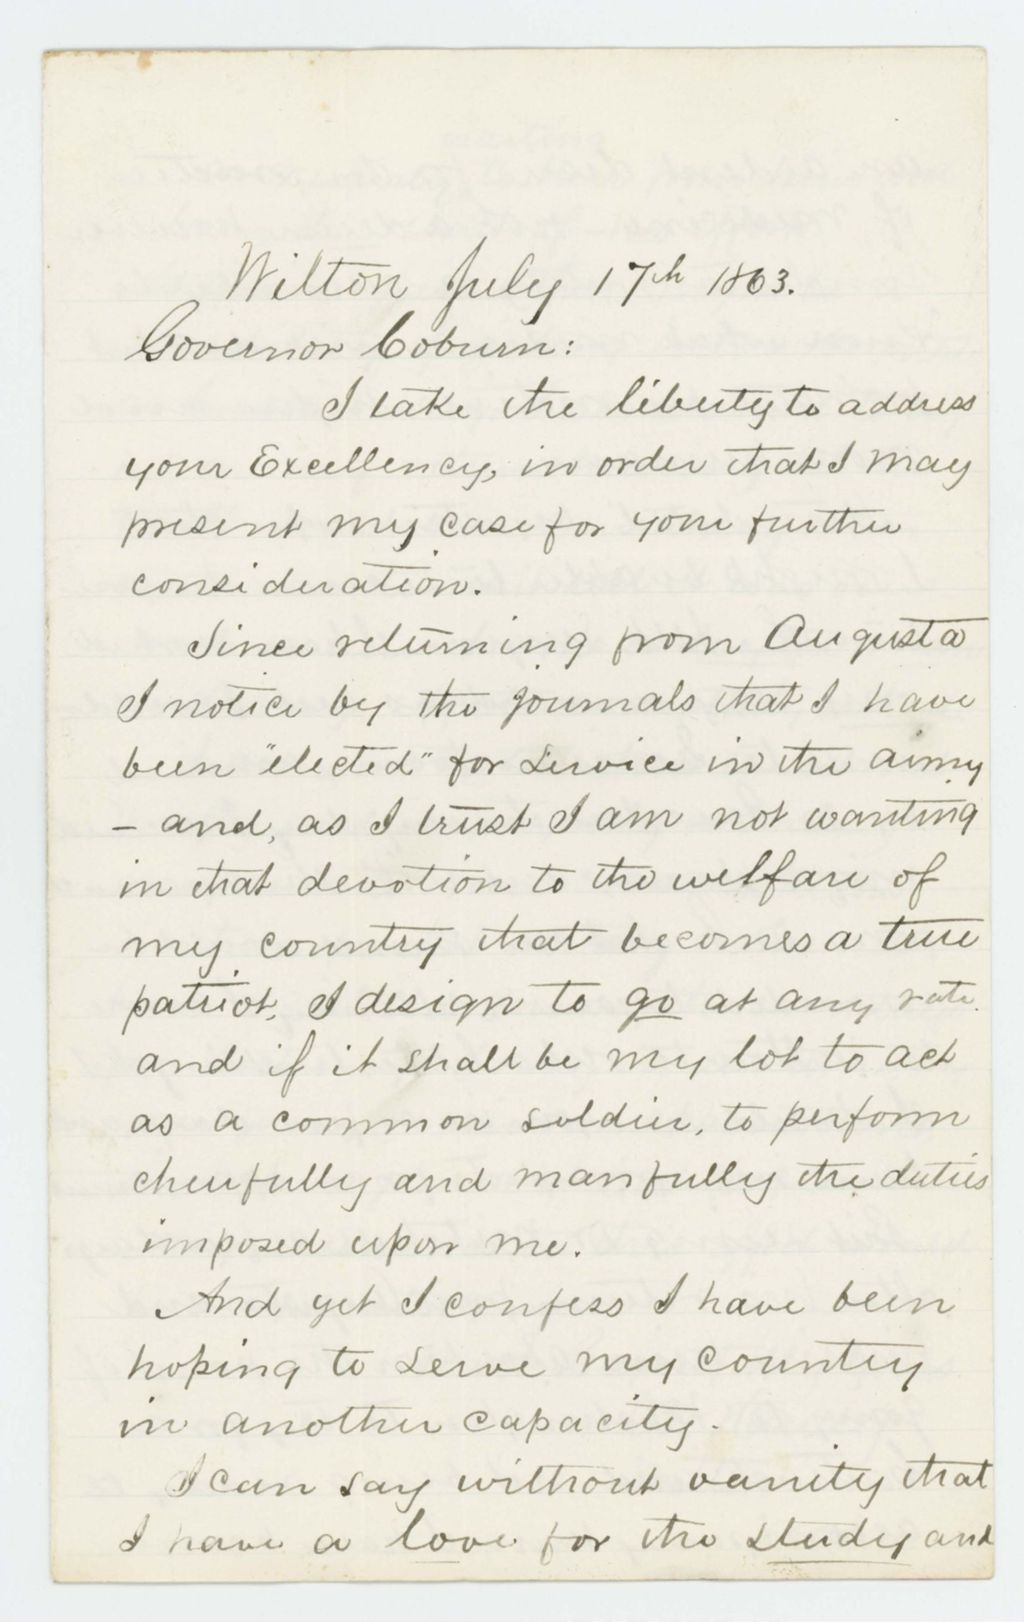 Wilton July 17th 1863.
Governor Coburn:
I take the liberty to address
your Excellency, in order that I may
present my case for your further
consideration.
Since returning from Augusta
I notice by the journals that I have
been "elected" for service in the army
– and, as I trust I am not wanting
in that devotion to the welfare of
my country that becomes a true
patriot, I design to go at any rate.
and if it shall be my lot to act
as a common soldier, to perform
cheerfully and manfully the duties
imposed upon me.
And yet I confess I have been
hoping to serve my country
in another capacity.
I can say without vanity that
I have a love for the study and